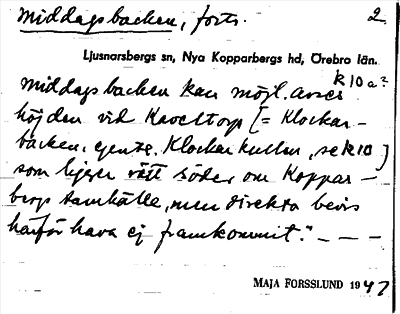 Middagsbacken, forts. 2.
Ljusnarsbergs sn, Nya Kopparbergs hd, Örebro län.
K 10 a?
Middagsbacken kan möjl. avses
höjden vid Kaveltorp [= Klockar-
backen, egentl. Klockarkullen, se K10]
som ligger rätt söder om Koppar-
bergs samhälle, men direkta bevis
härför hava ej framkommit." - - -
MAJA FORSSLUND 1947